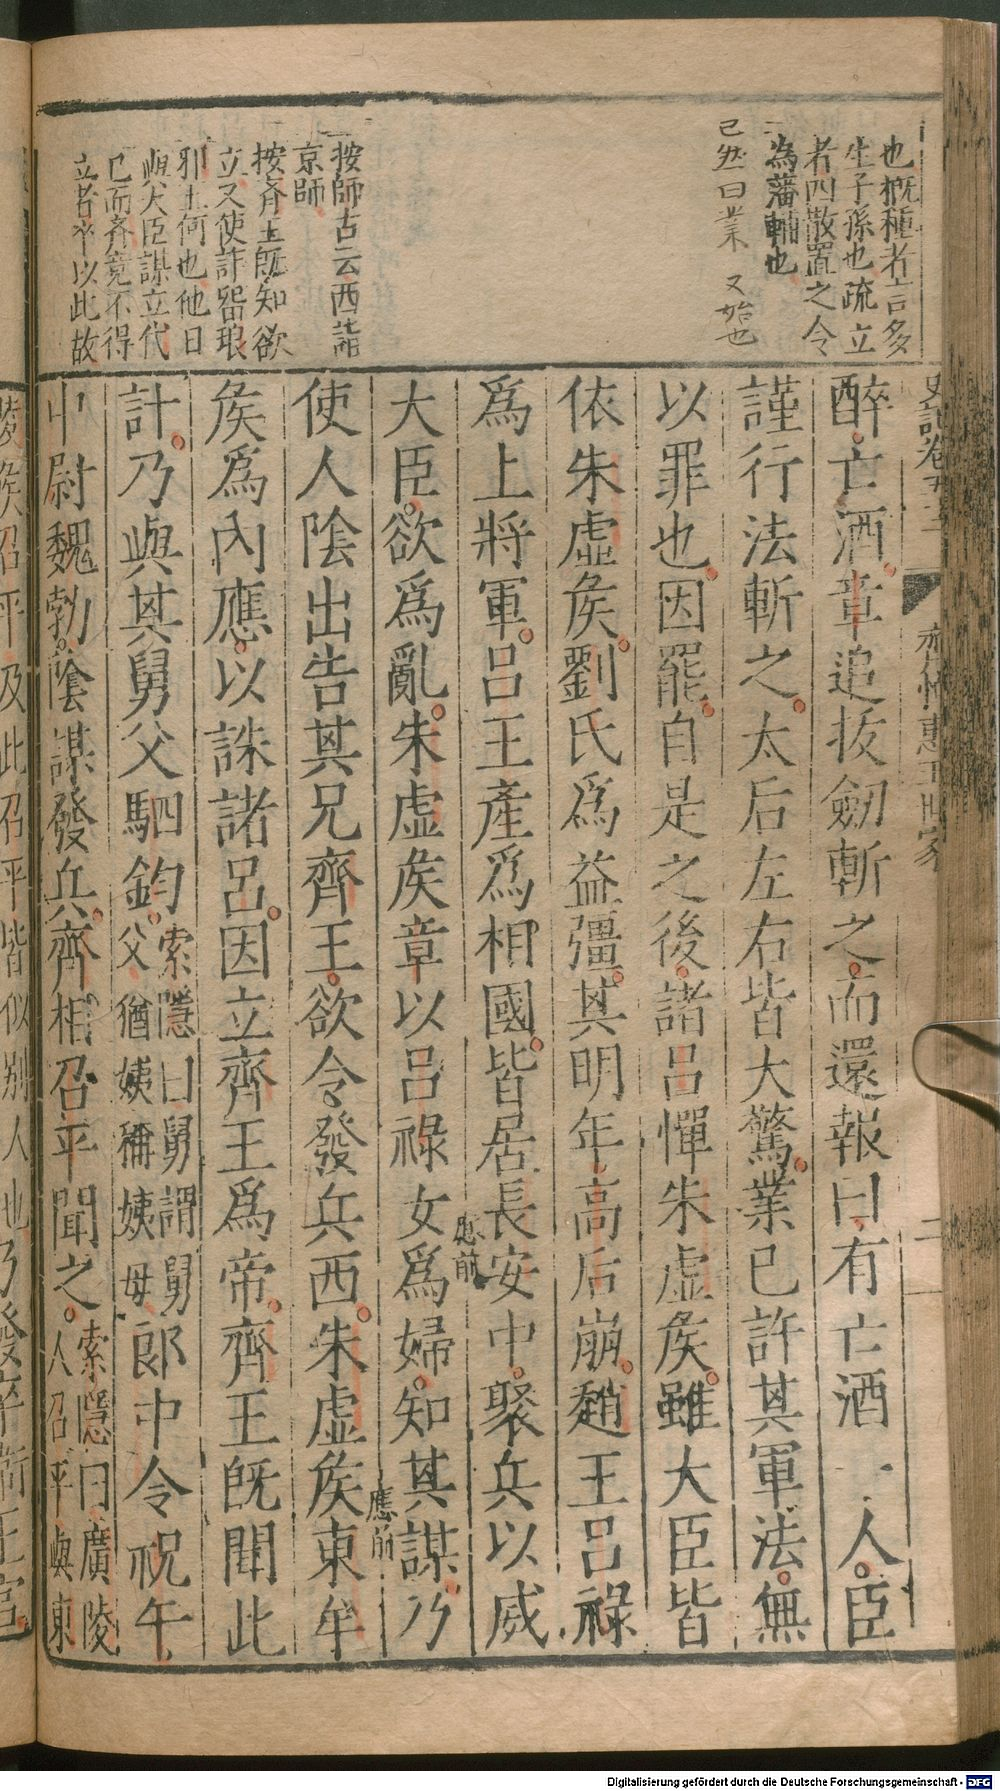 也概種者言多
生子孫也疏立
者四散置之令
為藩輔也
已然曰業 又始也
按師古云西詣
京師
按齊王既知欲
立又使詐畱琅
邪王何也他日
與大臣謀立代
已而齊竟不得
立者卒以此故
史記卷五十二 齊悼惠王世家 二
醉亡酒章追拔劒斬之而還報曰有亡酒一人臣
謹行法斬之太后左右皆大驚業已許其軍法無
以罪也因罷自是之後諸呂憚朱虛矦雖大臣皆
依朱虛矦劉氏爲益彊其明年高后崩趙王呂祿
爲上將軍呂王產爲相國皆居長安中聚兵以威
應前
大臣欲爲亂朱虛矦章以呂祿女爲婦知其謀乃
應前
使人陰出告其兄齊王欲令發兵西朱虛矦東牟
矦爲內應以誅諸呂因立齊王爲帝齊王旣聞此
計乃與其舅父駟鈞
索隱曰舅謂舅
父猶姨稱姨母
郎中令祝午
中尉魏勃陰謀發兵齊相召平聞之
索隱曰廣陵
人召平與東
陵矦召平及此召平皆似別人也
乃發卒衞王宮
Digitalisierung gefördert durch die Deutsche Forschungsgemeinschaft - DFG